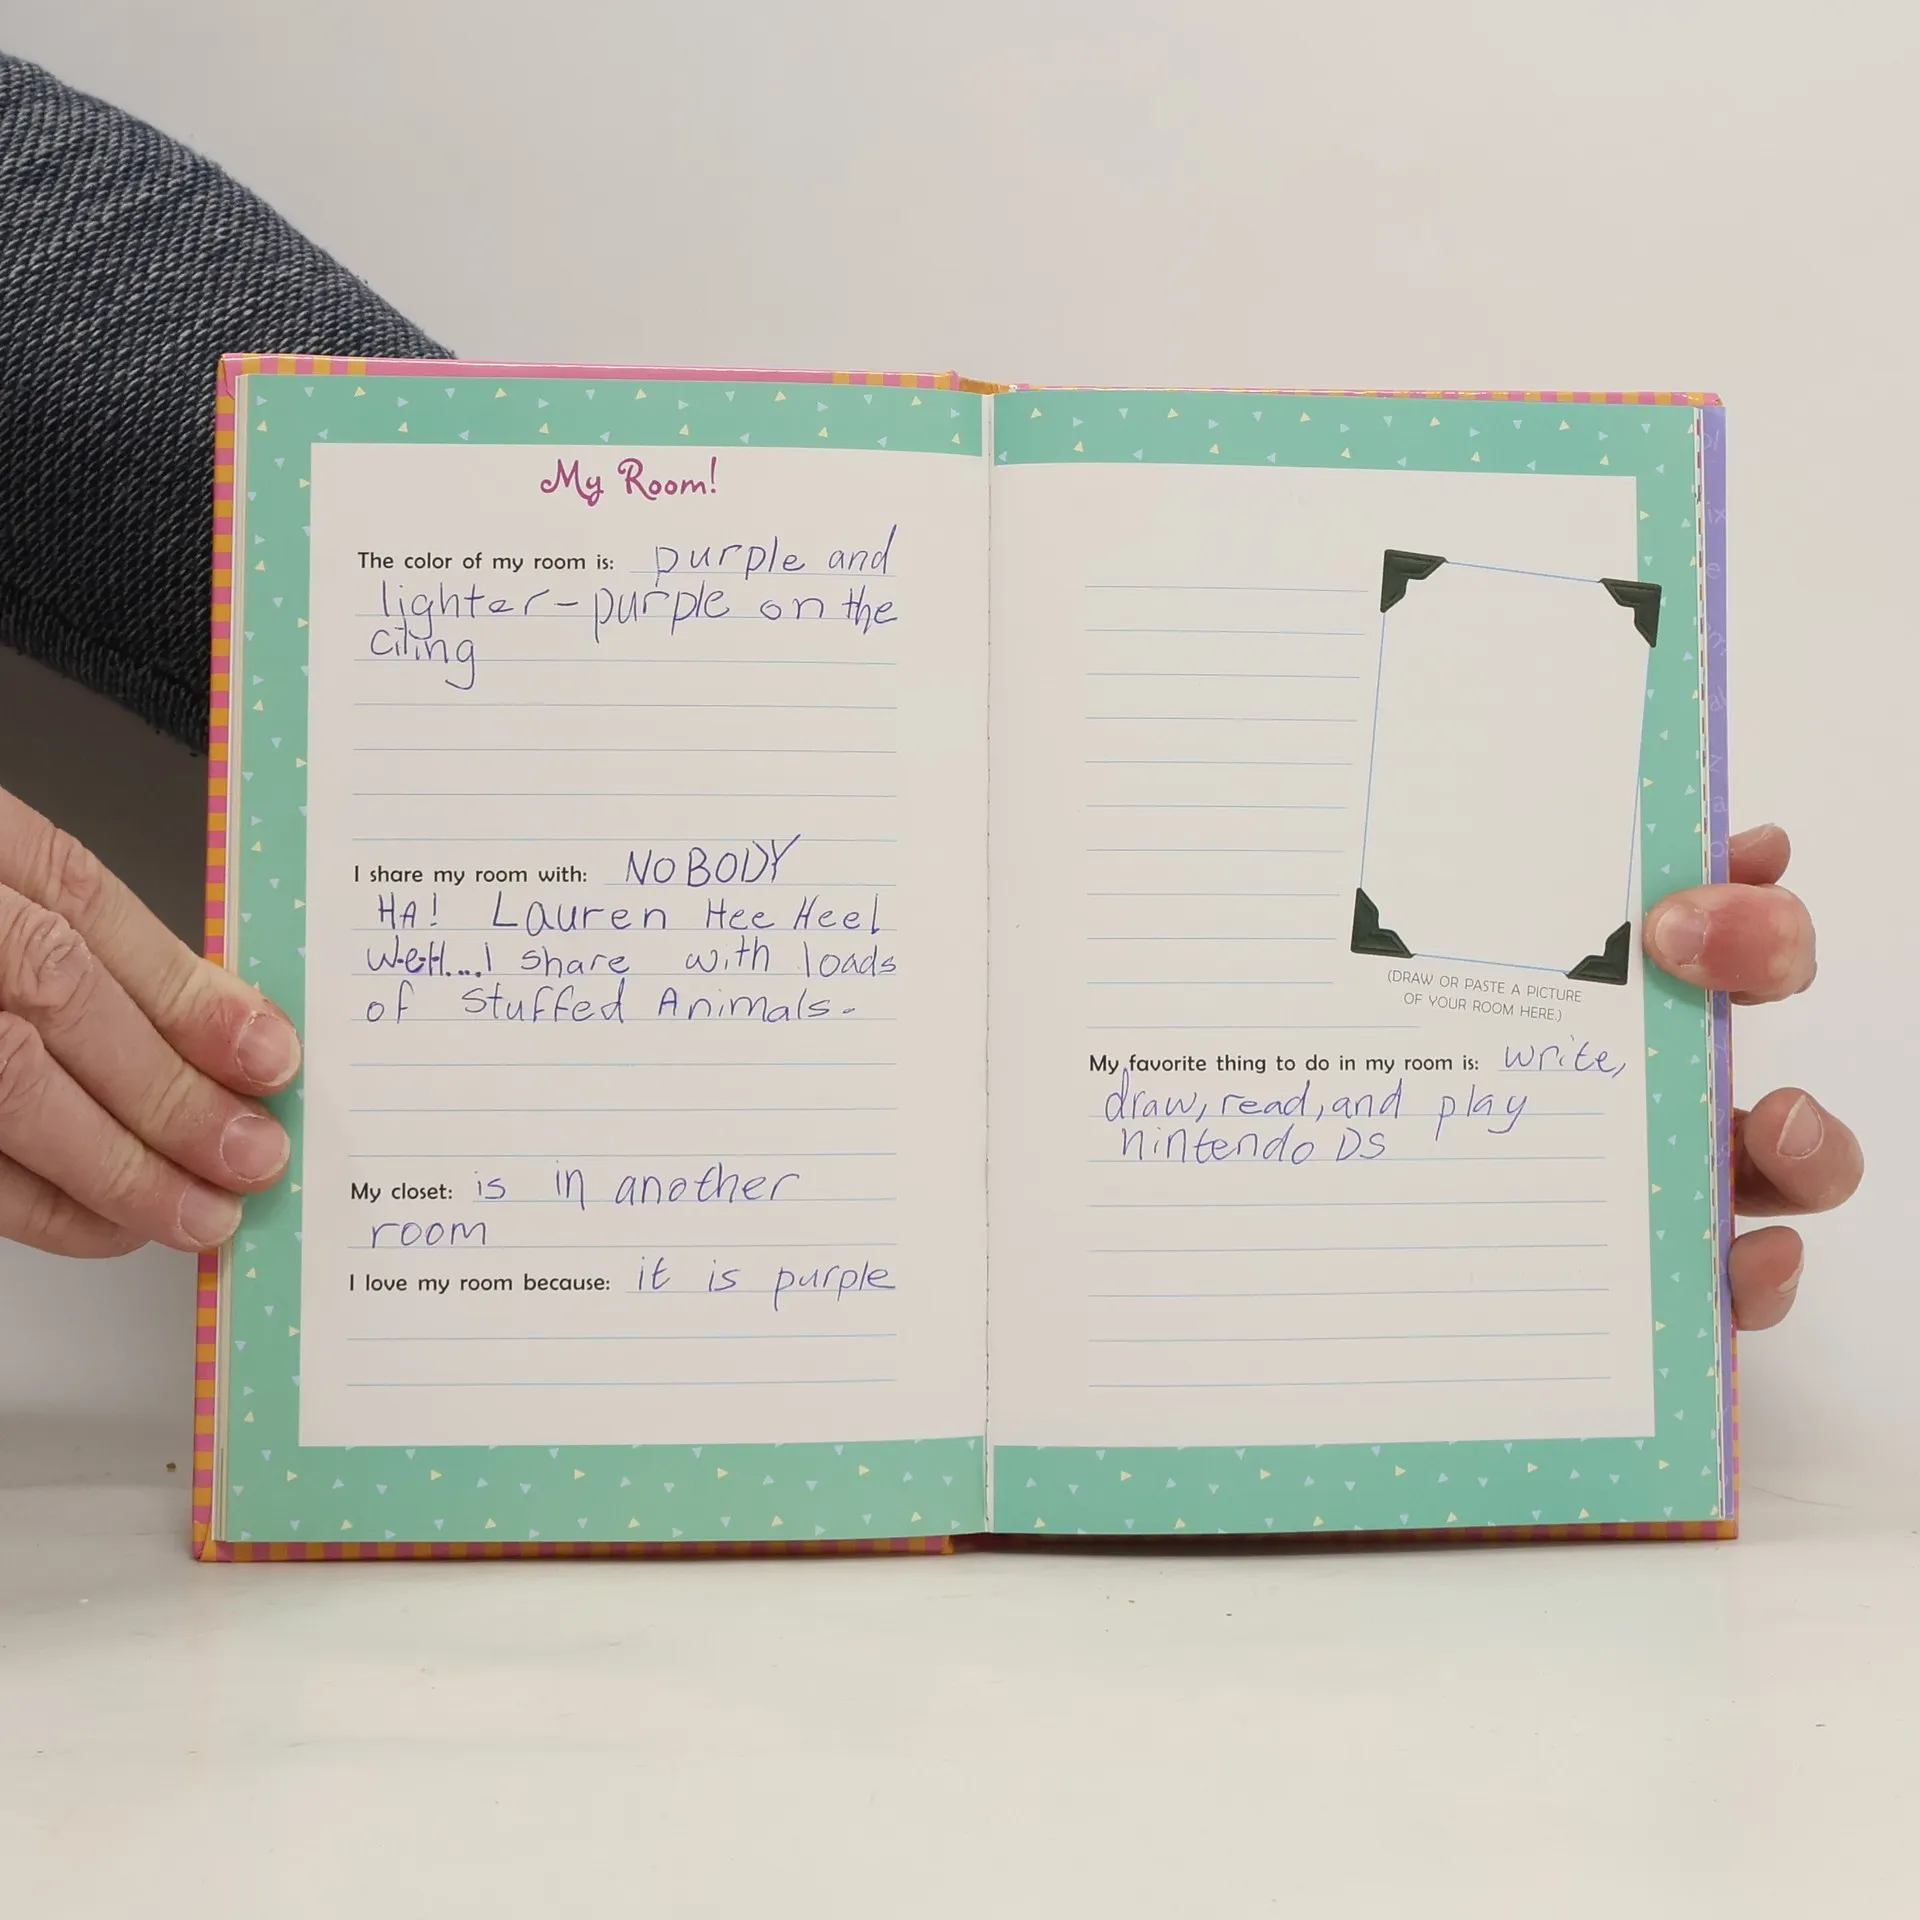 My Room!
The color of my room is: purple and
lighter-purple on the
citing
I share my room with: NOBODY
HA! Lauren Hee Hee!
Well....I share with loads
of Stuffed Animals.
My closet: is in another
room
I love my room because: it is purple
(DRAW OR PASTE A PICTURE
OF YOUR ROOM HERE.)
My favorite thing to do in my room is: write,
draw, read, and play
nintendo DS